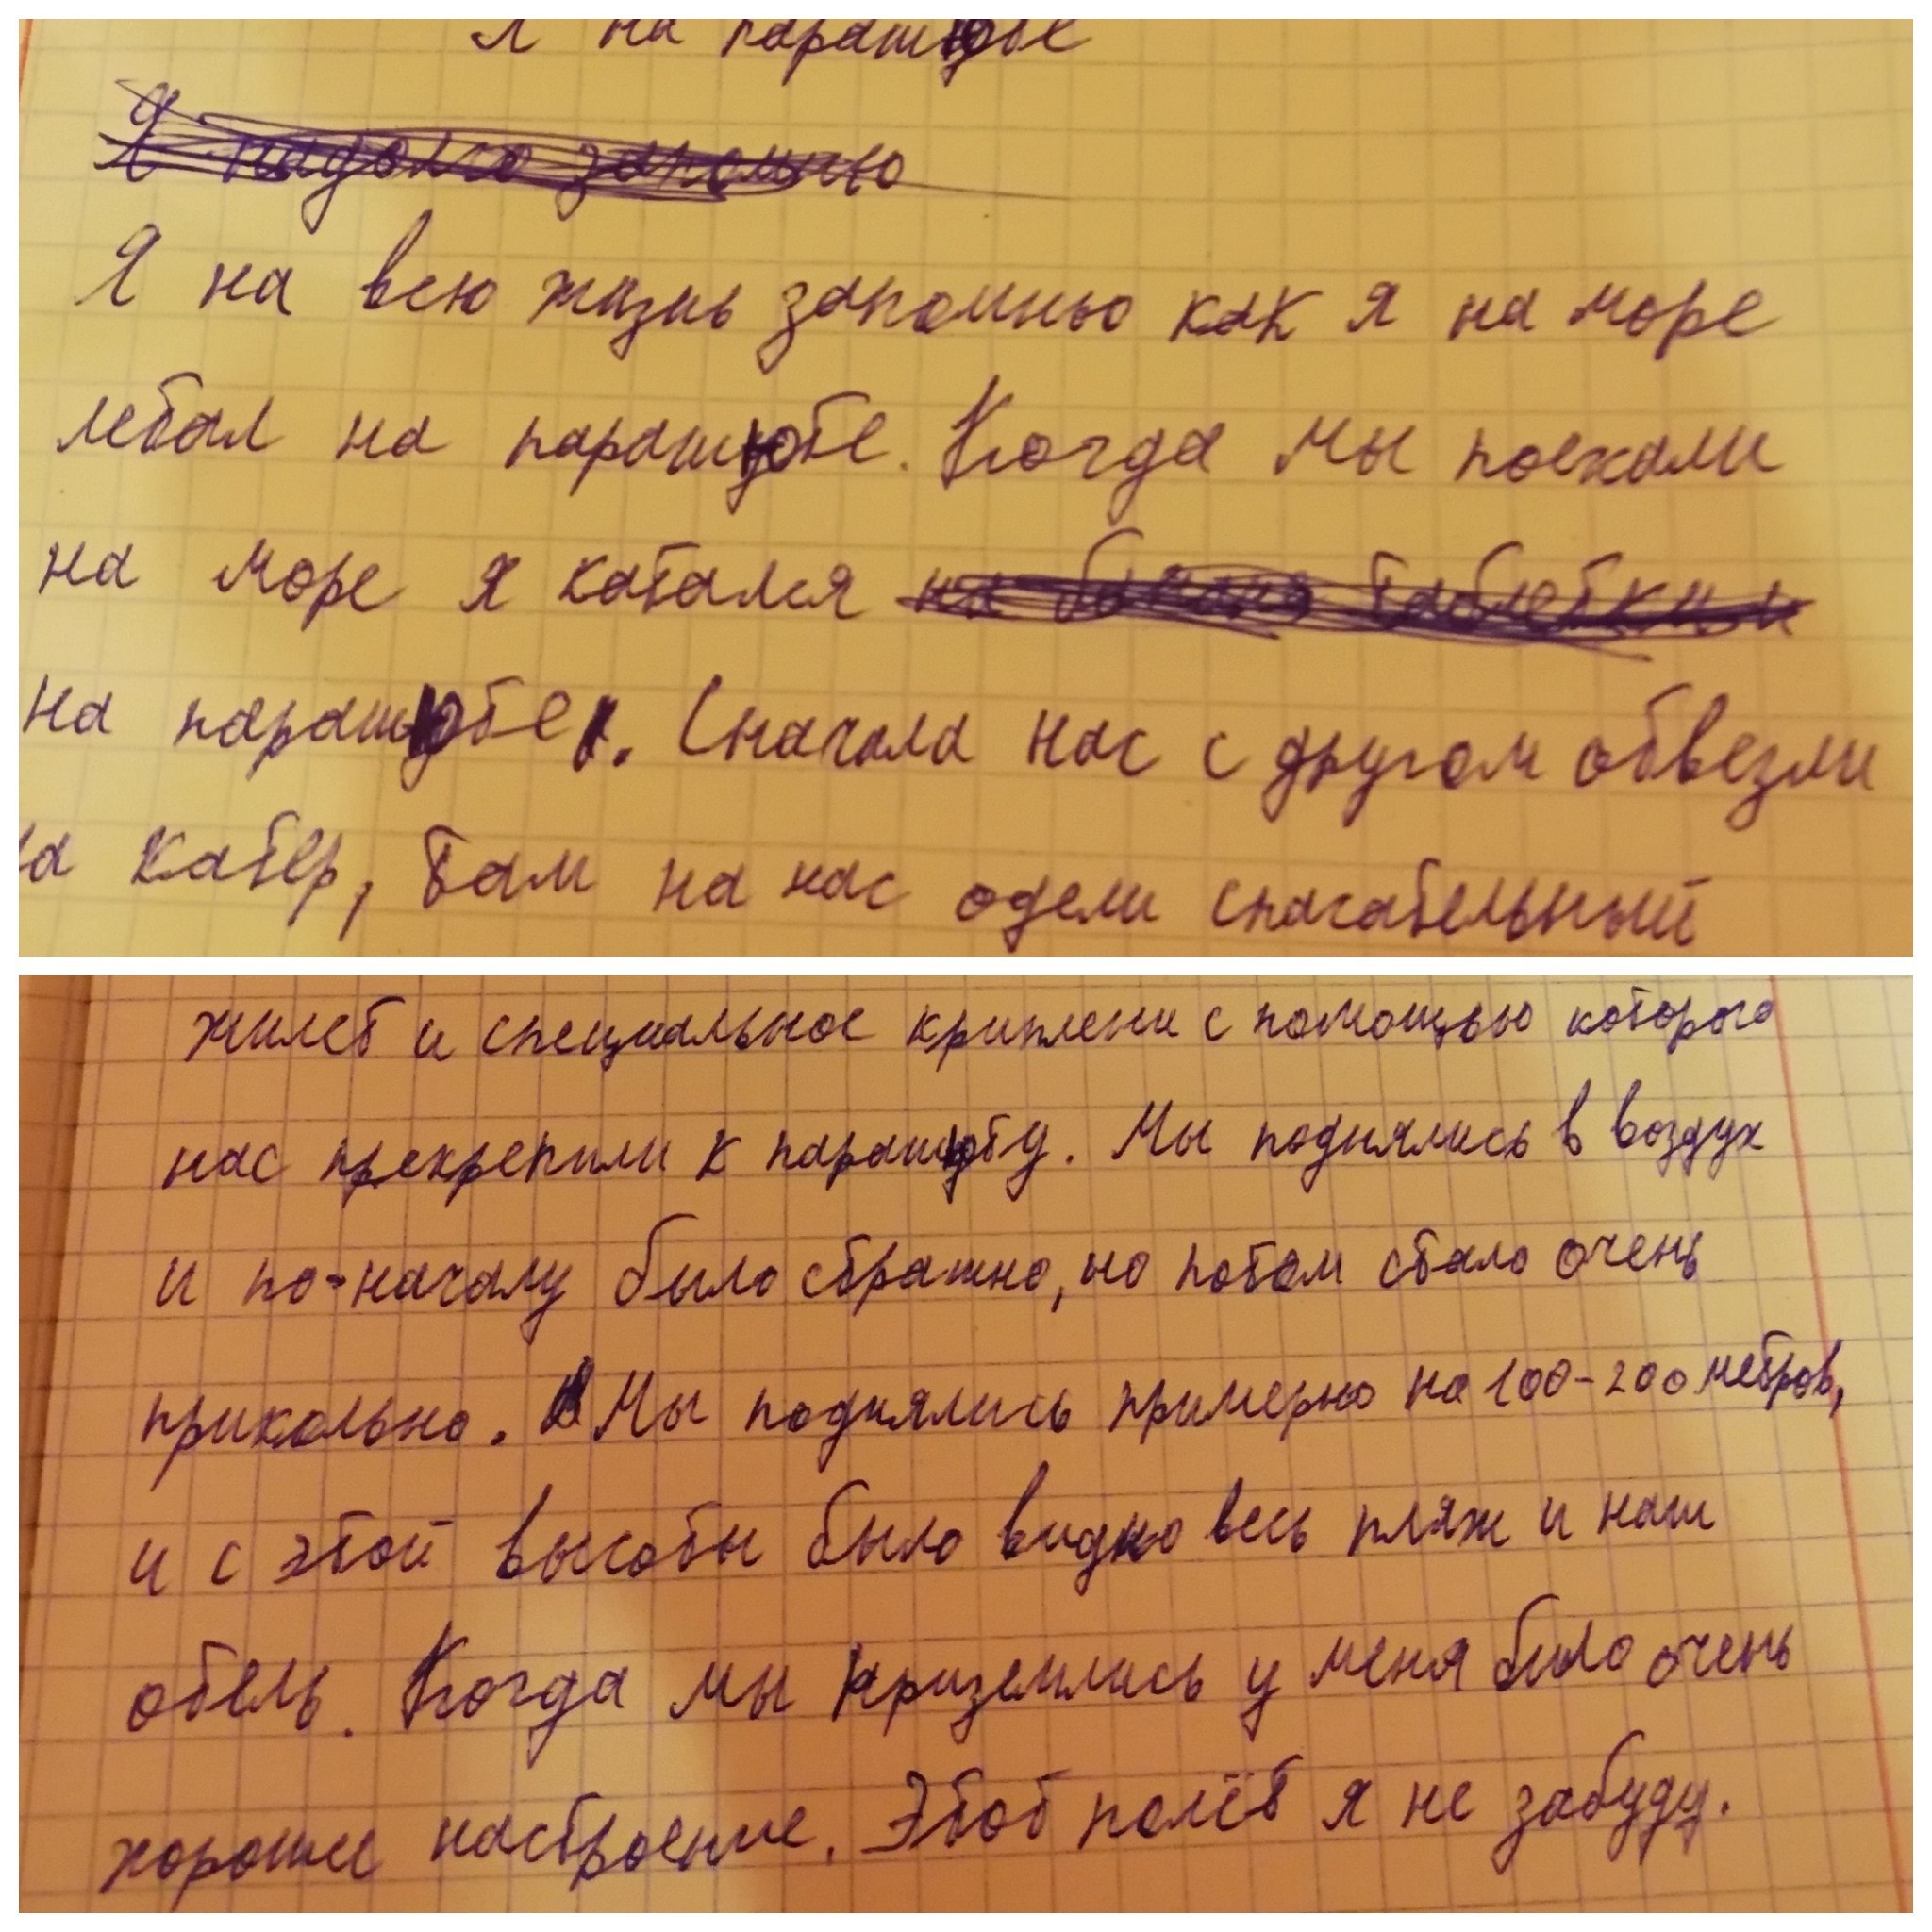 Я на парашюте
Я надолго запомню
Я на всю жизнь запомнью как я на море
летал на парашюте. Когда мы поехали
на море я катался на банане таблетки и
на парашюте. Сначала нас с другом отвезли
на катер, там на нас одели спасательный
жилет и специальное криплени с помощью которого
нас прекрепили к парашюту. Мы поднялись в воздух
и по-началу было страшно, но потом стало очень
прикольно. Мы поднялись примерно на 100-200 метров,
и с этой высоты было видно весь пляж и наш
отель. Когда мы приземлись у меня было очень
хорошее настроение. Этот полёт я не забуду.